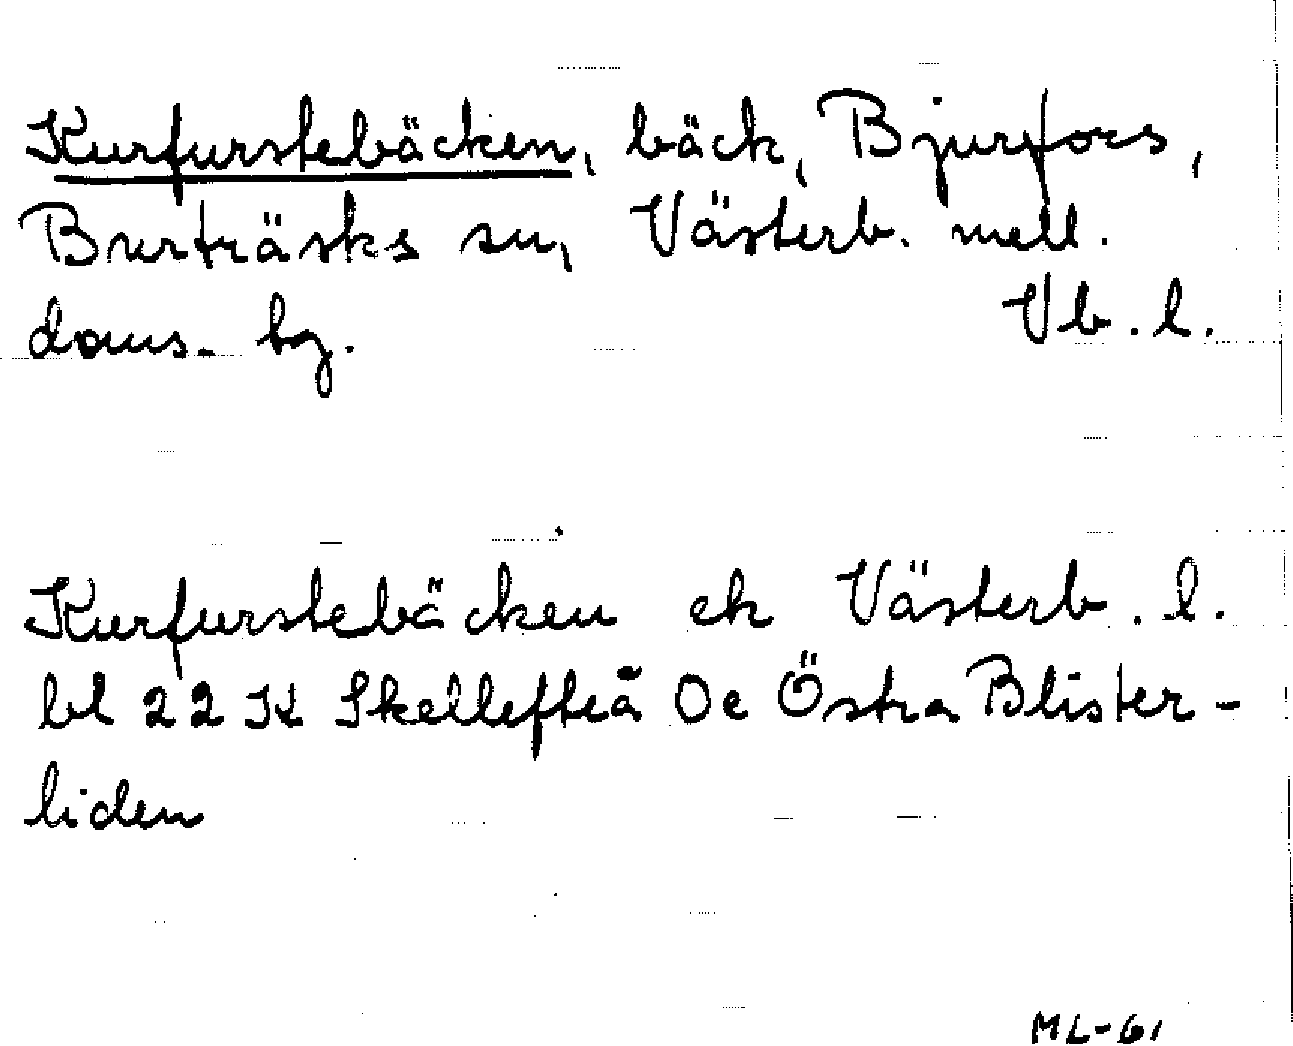 Kurfurstebäcken, bäck, Bjurfors,
Burträsks sn, Västerb. mell.
doms. bg. Vb. l.
Kurfurstebäcken ek Västerb. l.
bl 22 K Skellefteå Oc Östra Blister-
liden
ML-61